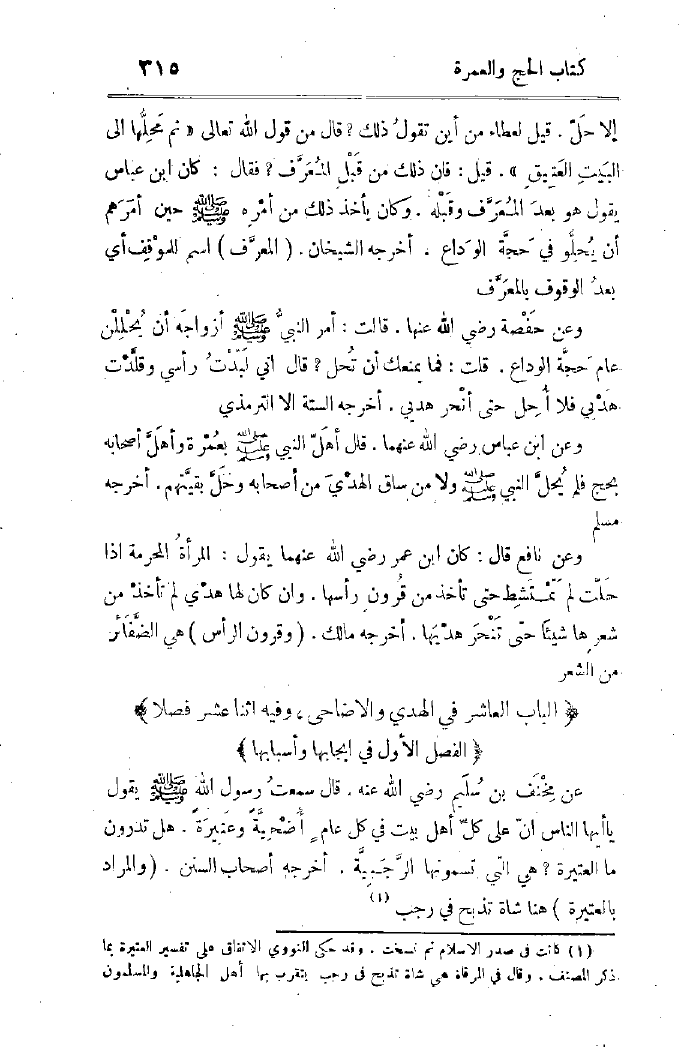 كتاب الحج والعمرة ٣١٥
إلا حَلّ . قيل لعطاء من أين تقولُ ذلك ? قال من قول الله تعالى « ثم مَحِلُّها الى
البَيتِ العَتِيقِ » . قيل : فان ذلك من قَبْل المُعَرَّف ? فقال : كان ابن عباس
يقول هو بعدَ المُعَرَّف وقَبْلَه . وكان يأخذ ذلك من أمْرِه ﷺ حين أمَرَهم
أن يُحلُّو في حَجةَّ الوَداع . أخرجه الشيخان . ( المعرَّف ) اسم للموْقِف أي
بعدُ الوقوف بالمعَرَّف
وعن حفَصة رضي الله عنها . قالت : أمر النبيُّ ﷺ أزواجَه أن يُحْلِلْن
عام حَجةَّ الوداع . قلت : فما يمنعك أن تُحل ? قال اني لَبّدْتُ رأسي وقلَّدْت
هَدْيي فلا أُحِل حتى أنْحر هديي . أخرجه الستة الا الترمذي
وعن ابن عباس رضي الله عنهما . قال أهَلّ النبي ﷺ بعُمْرة وأهَلَّ أصحابه
بحج فلم يُحِلَّ النبي ﷺ ولا من ساق الهدْيَ من أصحابه وحَلَّ بقيَّتهم . أخرجه
مسلم
وعن نافع قال : كان ابن عمر رضي الله عنهما يقول : المرأةُ المحرمة اذا
حَلّت لم تَمْتَشِط حتى تأخذ من قُرون رأسها . وان كان لها هدْي لم تأخذ من
شعرها شيئًا حتّى تَنْحَر هدْيَها . أخرجه مالك . ( وقرون الرأس ) هي الضَّفائر
من الشعر
﴿ الباب العاشر في الهدي والاضاحى ، وفيه اثنا عشر فصلا ﴾
﴿ الفصل الأول في ايجابها وأسبابها ﴾
عن مِخْنَف بن سُلَيم رضي الله عنه . قال سمعتُ رسول الله ﷺ يقول
ياأيها الناس انّ على كلّ أهل بيت في كل عام أُضْحِيَّةً وعَتِيرَةً . هل تدرون
ما العتيرة ? هي التي تسمونها الرَّجَبيةَّ . أخرجه أصحاب السنن . ( والمراد
بالعتيرة ) هنا شاة تذبح في رجب (١)
(١) كانت فى صدر الاسلام ثم نسخت . وقد حكى النووي الاتفاق على تفسير العتيرة بما
ذكر المصنف . وقال في المرقاة هي شاة تذبح فى رجب يتقرب بها أهل الجاهلية والمسلمون